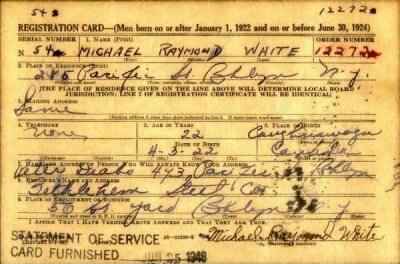 54 3 12272
REGISTRATION CARD—(Men born on or after January 1, 1922 and on or before June 30, 1924)
SERIAL NUMBER 1. NAME (Print) ORDER NUMBER
N 54 MICHAEL RAYMOND WHITE 12272
(First) (Middle) (Last)
2. PLACE OF RESIDENCE (Print)
285 Pacific St. Bklyn N.Y.
THE PLACE OF RESIDENCE GIVEN ON THE LINE ABOVE WILL DETERMINE LOCAL BOARD
JURISDICTION; LINE 2 OF REGISTRATION CERTIFICATE WILL BE IDENTICAL
3. MAILING ADDRESS
Same
[Mailing address if other than place indicated on line 2. If same insert word same]
4. TELEPHONE 5. AGE IN YEARS 6. PLACE OF BIRTH
None 22 Caughnawaga
DATE OF BIRTH
4-3-22 Canada
7. NAME AND ADDRESS OF PERSON WHO WILL ALWAYS KNOW YOUR ADDRESS
Peter 473 Pacific St Bklyn
8. EMPLOYER'S NAME AND ADDRESS
Bethlehem Steel Co
9. PLACE OF EMPLOYMENT OR BUSINESS
56 St Yard Bklyn N.Y
I AFFIRM THAT I HAVE VERIFIED ABOVE ANSWERS AND THAT THEY ARE TRUE.
STATEMENT OF SERVICE Michael Raymond White
CARD FURNISHED JUN 25 1948